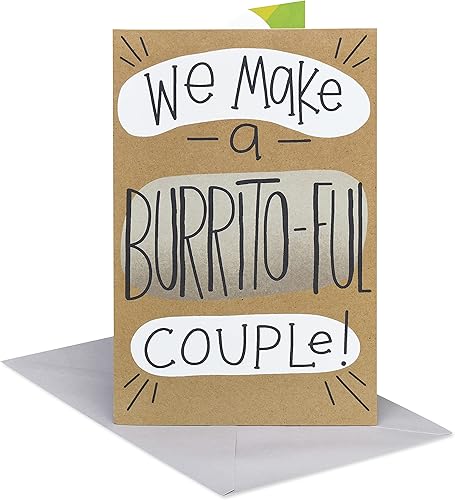 We Make
-a-
BURRITO-FUL
COUPLe!